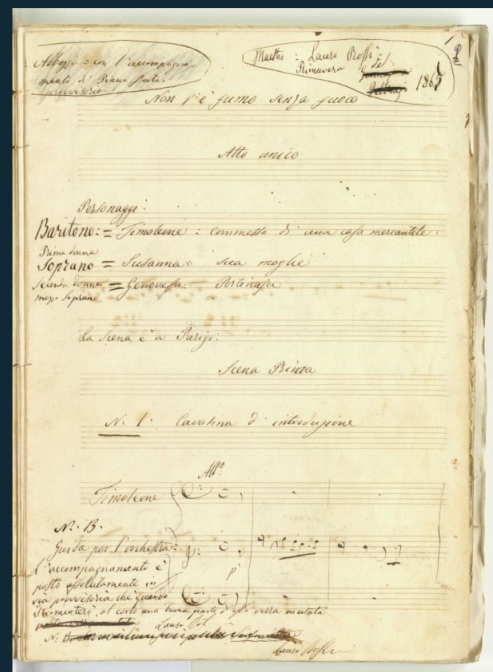 Abbozzo = con l'accompagna
mento di Piano forte
provvisorio
Maestro : Lauro Rossi
Primavera del
1865
Non v'è fumo senza fuoco
Atto unico
Personaggi :
Baritono : = Timoleone : commesso di una casa mercantile .
Prima donna
Soprano = Susanna : sua moglie
Seconda donna
mezzo soprano = Genovefa Portinaja
La Scena è a Parigi .
Scena Prima
N. 1. Cavatina d'introduzione
All.º
Timoleone
N. B.
Guida per l'orchestra :
L'accompagnamento è
posto assolutamente in
via provvisoria che quando
strumenterò, al certo una buona parte
Lauro
N. B.
Lauro Rossi